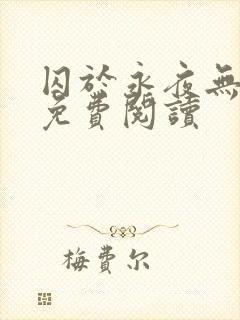 囚於永夜無
免費閱讀
梅費尔